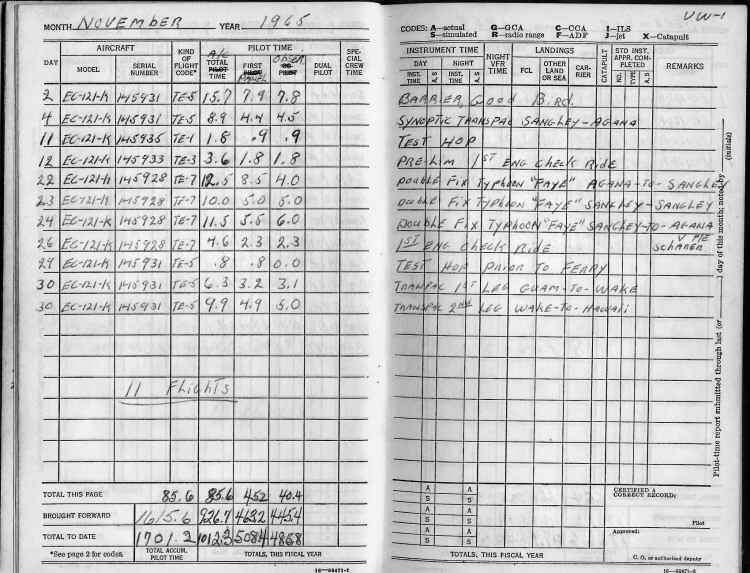 MONTH NOVEMBER YEAR 1965
AIRCRAFT KIND OF FLIGHT CODE* PILOT TIME SPECIAL CREW TIME
DAY MODEL SERIAL NUMBER A/C TOTAL PILOT TIME FIRST PILOT PANEL OBSER. CO PILOT DUAL PILOT
2 EC-121-K 145931 TE-5 15.7 7.9 7.8
4 EC-121-K 145931 TE-5 8.9 4.4 4.5
11 EC-121-K 145935 TE-1 1.8 .9 .9
12 EC-121-K 145933 TE-3 3.6 1.8 1.8
22 EC-121-K 145928 TE-7 12.5 8.5 4.0
23 EC-121-K 145928 TE-7 10.0 5.0 5.0
24 EC-121-K 145928 TE-7 11.5 5.5 6.0
26 EC-121-K 145928 TE-7 4.6 2.3 2.3
29 EC-121-K 145931 TE-5 .8 .8 0.0
30 EC-121-K 145931 TE-5 6.3 3.2 3.1
30 EC-121-K 145931 TE-5 9.9 4.9 5.0
11 Flights
TOTAL THIS PAGE 85.6 85.6 45.2 40.4
BROUGHT FORWARD 1615.6 926.7 463.2 445.4
TOTAL TO DATE 1701.2 1012.3 508.4 485.8
*See page 2 for codes. TOTAL ACCUM. PILOT TIME TOTALS, THIS FISCAL YEAR
VW-1
CODES: A—actual G—GCA C—CCA I—ILS
S—simulated R—radio range F—ADF J—jet X—Catapult
INSTRUMENT TIME NIGHT VFR TIME LANDINGS CATAPULT STD INST. APPR. COMPLETED REMARKS
DAY NIGHT FCL OTHER LAND OR SEA CARRIER NO. TYPE A, S
INST. TIME A, S INST. TIME A, S
BARRIER, Good Bird.
SYNOPTIC TRANSPAC SANGLEY-AGANA
TEST HOP
PRE-LIM 1ST ENG Check Ride
DOUBLE FIX TYPHOON "FAYE" AGANA-TO-SANGLEY
DOUBLE FIX TYPHOON "FAYE" SANGLEY-SANGLEY
DOUBLE FIX TYPHOON "FAYE" SANGLEY-TO-AGANA
1ST ENG Check RIDE
TEST HOP PRIOR TO FERRY
TRANSPAC 1ST LEG GUAM-TO-WAKE
TRANSPAC 2ND LEG WAKE-TO-HAWAII
A A
S S
A A
S S
A A
S S
CERTIFIED A CORRECT RECORD:
Pilot
Approved:
TOTALS, THIS FISCAL YEAR
C. O. or authorized deputy
Pilot-time report submitted through last (or ) day of this month; noted by (initials)